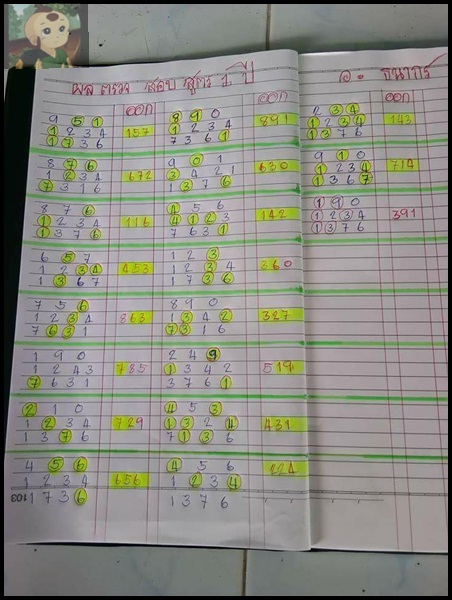 ผลตรวจ สอบ สูตร 1 ปี
อ. ธนากร
ออก
9 5 1
1 2 3 4
1 7 3 6
157
8 7 6
1 2 3 4
7 3 1 6
672
8 7 6
1 2 3 4
1 3 7 6
116
6 5 7
1 2 3 4
1 3 6 7
453
7 5 6
1 2 3 4
7 6 3 1
863
1 9 0
1 2 4 3
7 6 3 1
785
2 1 0
1 2 3 4
1 3 7 6
729
4 5 6
1 2 3 4
1 7 3 6
656
103
ออก
8 9 0
1 2 3 4
7 3 6 1
891
9 0 1
3 4 2 1
1 3 7 6
630
4 5 6
4 1 2 3
7 6 3 1
142
1 2 3
1 2 3 4
1 3 7 6
360
8 9 0
1 3 4 2
7 3 1 6
327
2 4 9
1 3 4 2
3 7 6 1
519
4 5 3
1 3 2 4
7 1 3 6
431
4 5 6
1 2 3 4
1 3 7 6
224
ออก
2 3 4
1 2 3 4
1 3 7 6
143
9 1 0
1 2 3 4
1 3 6 7
714
1 9 0
1 2 3 4
1 3 7 6
391